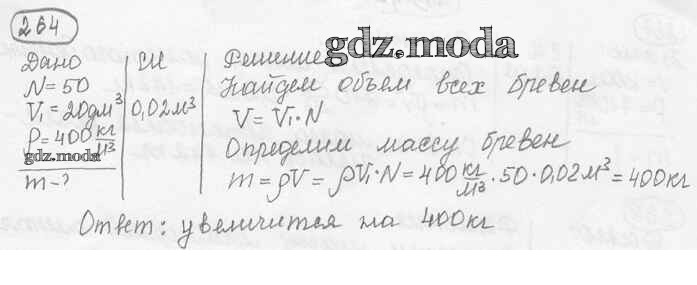 264
Дано
СИ
N=50
V₁=20дм³
0,02м³
ρ=400 кг/м³
gdz.moda
m-?
Решение
gdz.moda
Найдем объем всех бревен
V=V₁·N
Определим массу бревен
m=ρV=ρV₁·N=400 кг/м³·50·0,02м³=400кг
Ответ: увеличится на 400кг